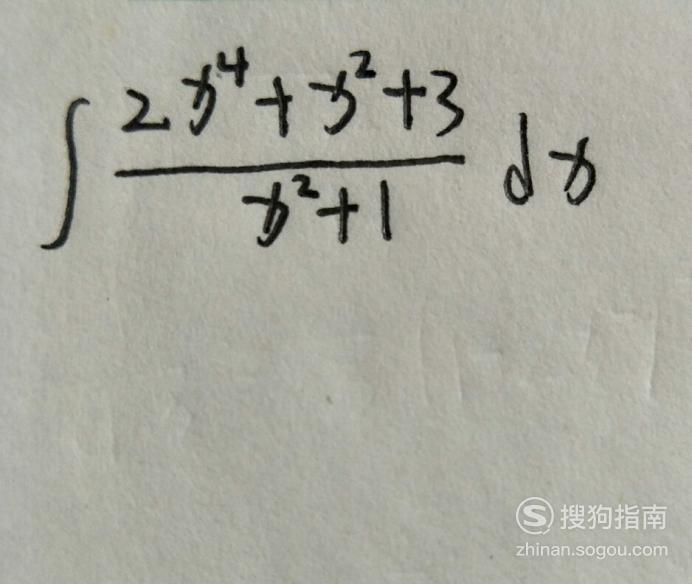 ∫ (2x⁴+x²+3)/(x²+1) dx
搜狗指南
zhinan.sogou.com